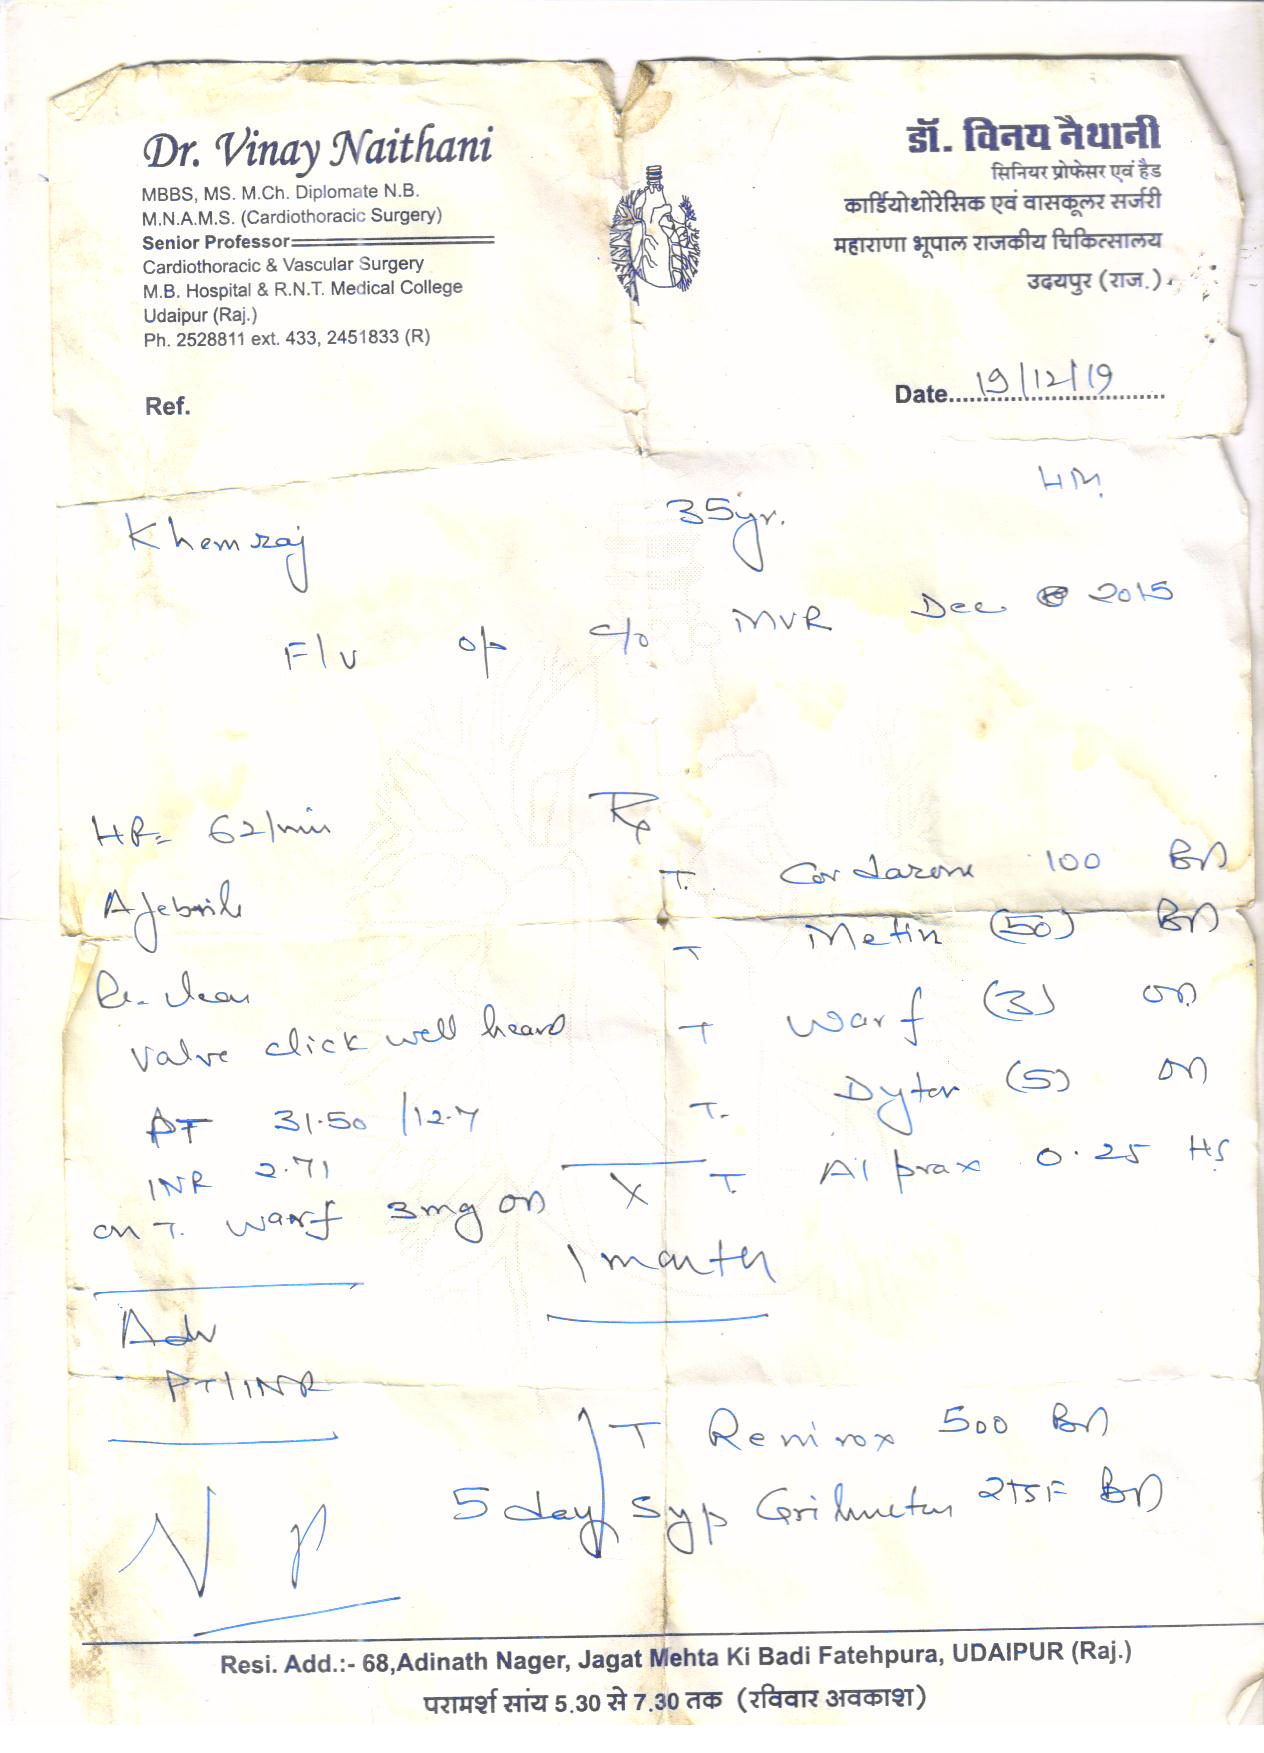 Dr. Vinay Naithani
MBBS, MS. M.Ch. Diplomate N.B.
M.N.A.M.S. (Cardiothoracic Surgery)
Senior Professor
Cardiothoracic & Vascular Surgery
M.B. Hospital & R.N.T. Medical College
Udaipur (Raj.)
Ph. 2528811 ext. 433, 2451833 (R)
डॉ. विनय नैथानी
सिनियर प्रोफेसर एवं हैड
कार्डियोथोरेसिक एवं वासकूलर सर्जरी
महाराणा भूपाल राजकीय चिकित्सालय
उदयपुर (राज.)
Ref.
Date 19/12/19
Khemraj 35yr.
F/v o/p c/o MVR Dec 2015
HR= 62/min
Afebrile
valve click well heard
PT 31.50 /12.7
INR 2.71
on T. Warf 3mg OD
Adv
PT/INR
Rx
T. Cordarone 100 BD
T Metin (50) BD
T Warf (3) OD
T. Dytor (5) OD
T. Alprax 0.25 HS
X
1 month
T Remirox 500 BD
5 day Syp 2TSF BD
Resi. Add.:- 68,Adinath Nager, Jagat Mehta Ki Badi Fatehpura, UDAIPUR (Raj.)
परामर्श सांय 5.30 से 7.30 तक (रविवार अवकाश)